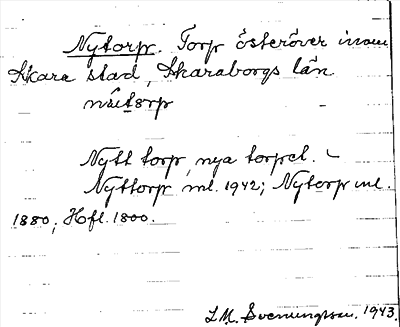 Nytorp. Torp österöver inom
Skara stad, Skaraborgs län
nŷtorp
Nytt torp, nya torpet. –
Nyttorp ml. 1942; Nytorp ml.
1880; Hofl. 1800.
I. M. Svenungsson. 1943.